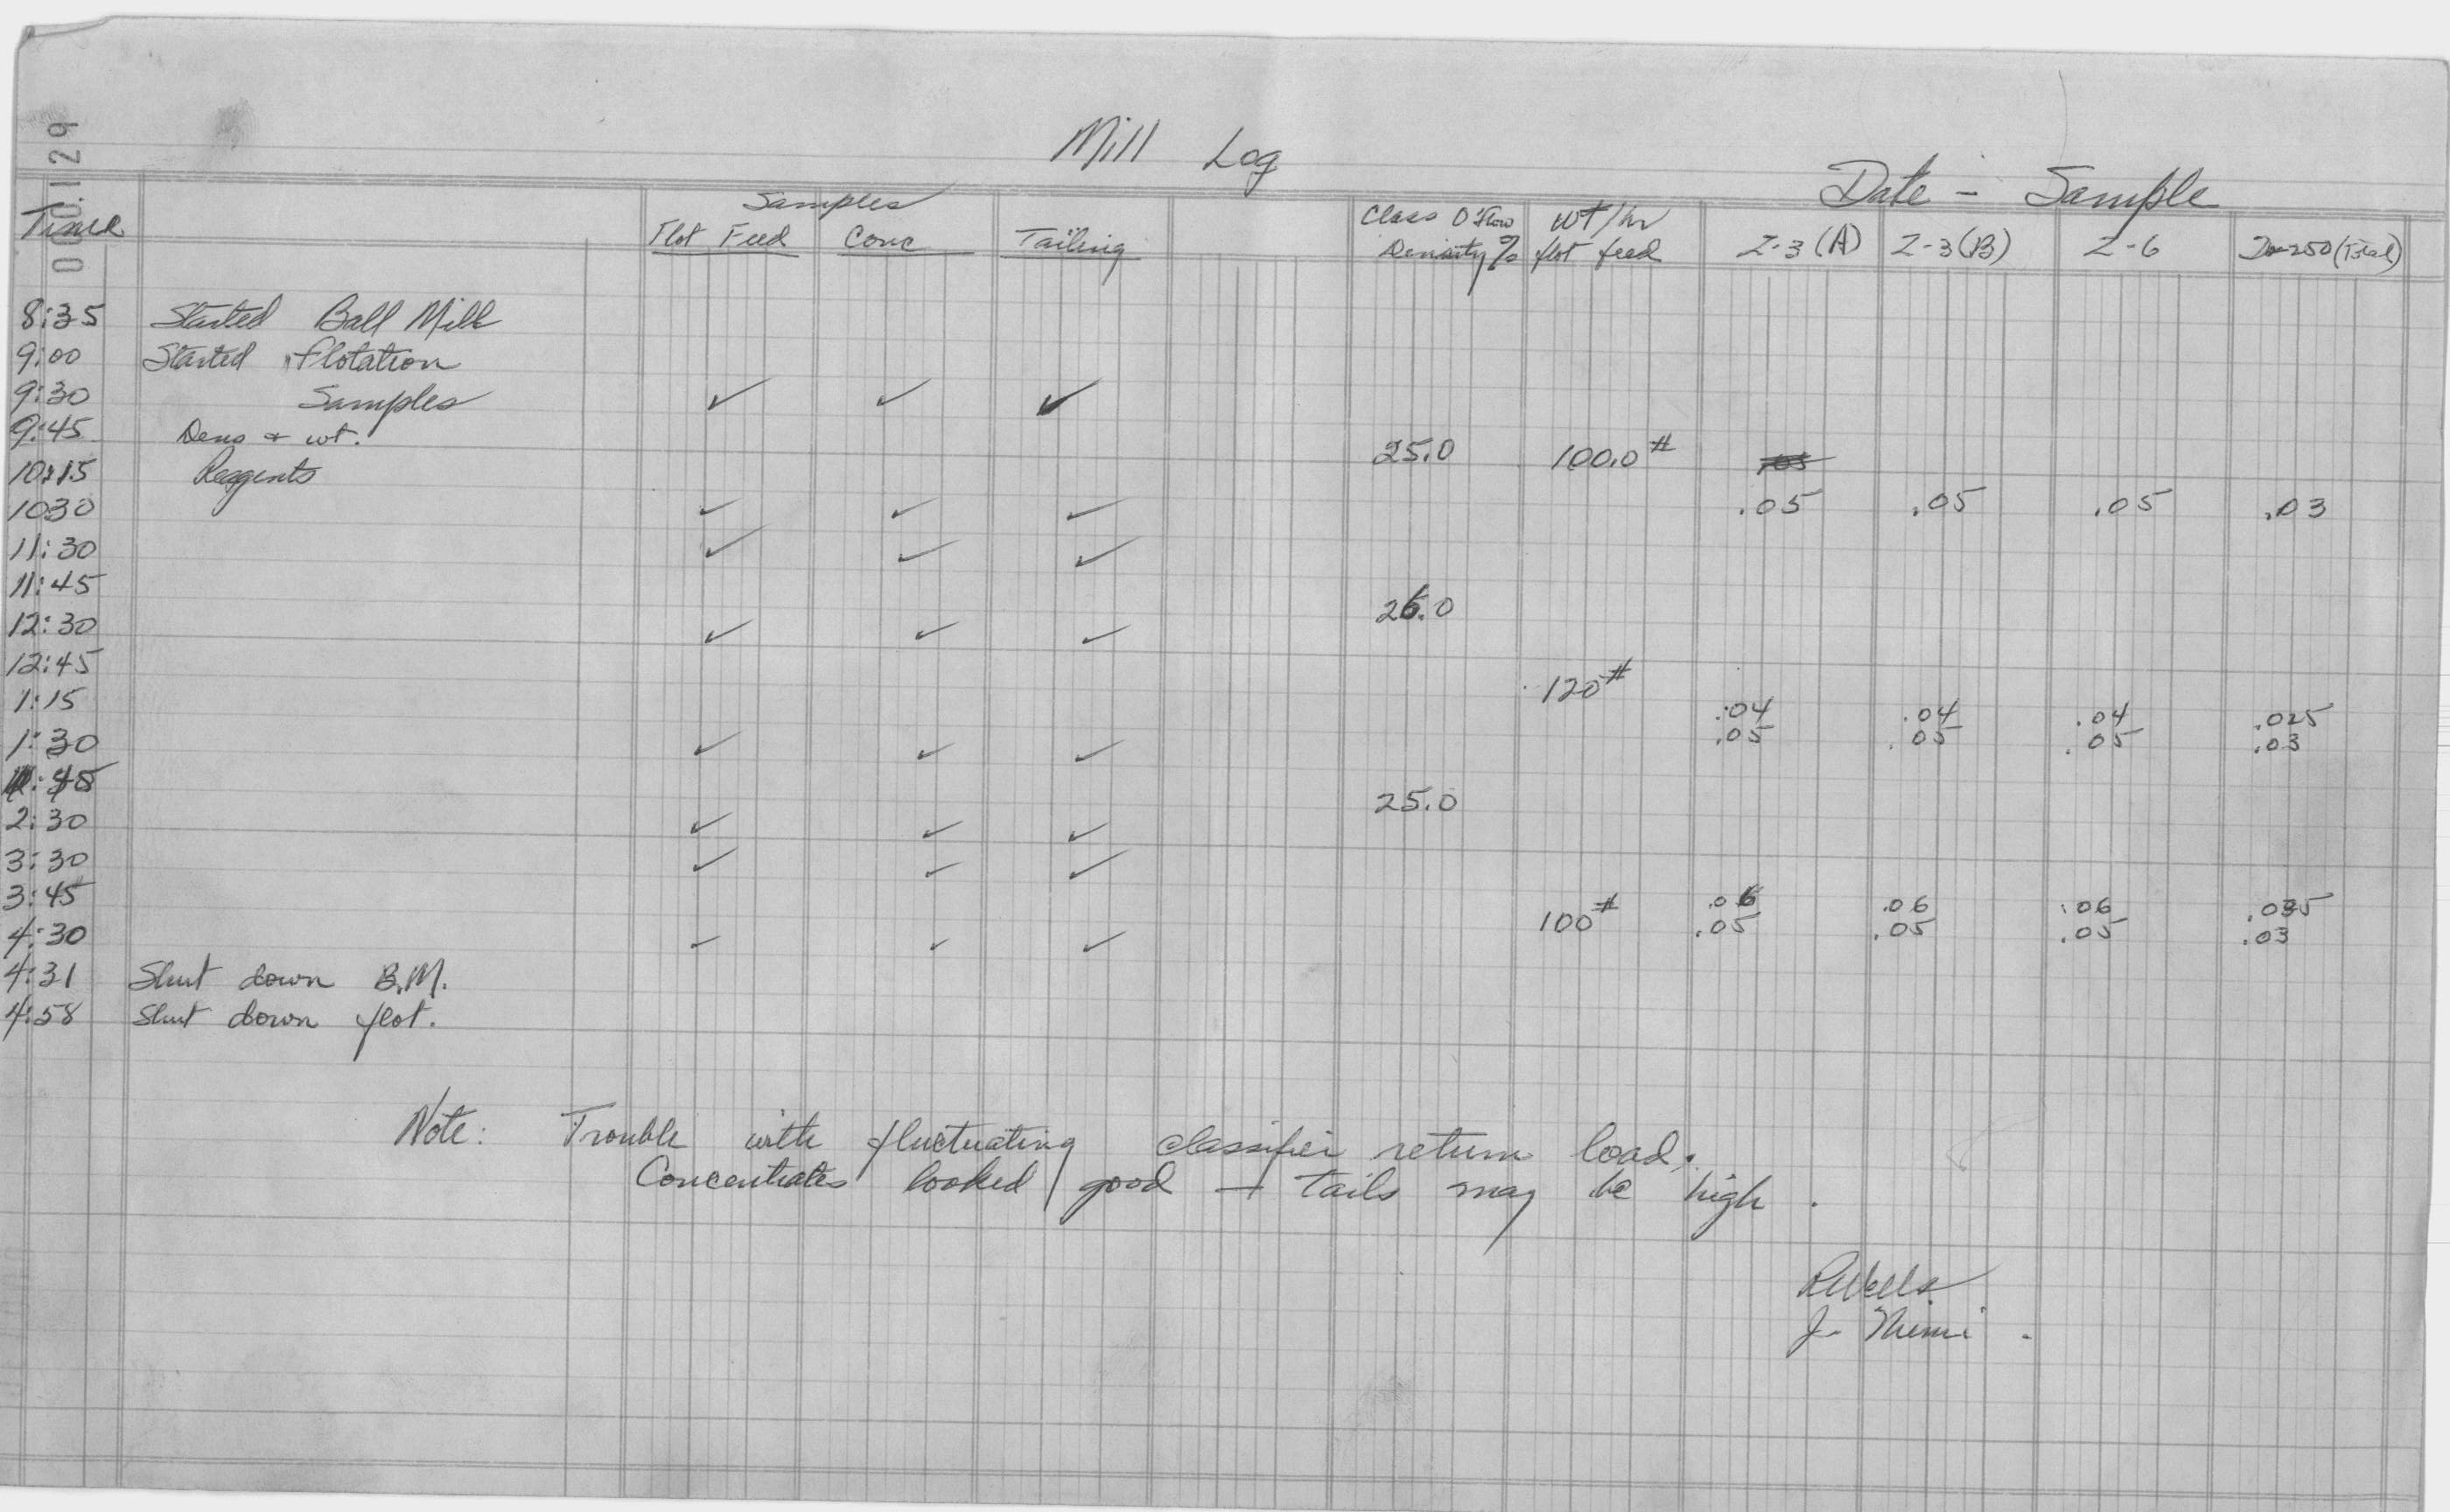 000129
Mill Log
Date - Sample
Samples
Time Flot Feed Conc Tailing Class O'Flow Density % wt/hr flot feed Z-3 (A) Z-3 (B) Z-6 (Total)
8:35 Started Ball Mill
9:00 Started flotation
9:30 Samples ✓ ✓ ✓
9:45 Dens + wt. 25.0 100.0#
10:15 Reagents .05 .05 .05 .03
1030 ✓ ✓ ✓
11:30 ✓ ✓ ✓
11:45 26.0
12:30 ✓ ✓ ✓
12:45 120#
1:15 .04 .04 .04 .025
.05 .05 .05 .03
1:30 ✓ ✓ ✓
:45 25.0
2:30 ✓ ✓ ✓
3:30 ✓ ✓ ✓
3:45 100# .06 .06 .06 .035
.05 .05 .05 .03
4:30 ✓ ✓ ✓
4:31 Shut down B.M.
4:58 Shut down flot.
Note: Trouble with fluctuating classifier return load.
Concentrates looked good + tails may be high.
RWells
J. Niemi.